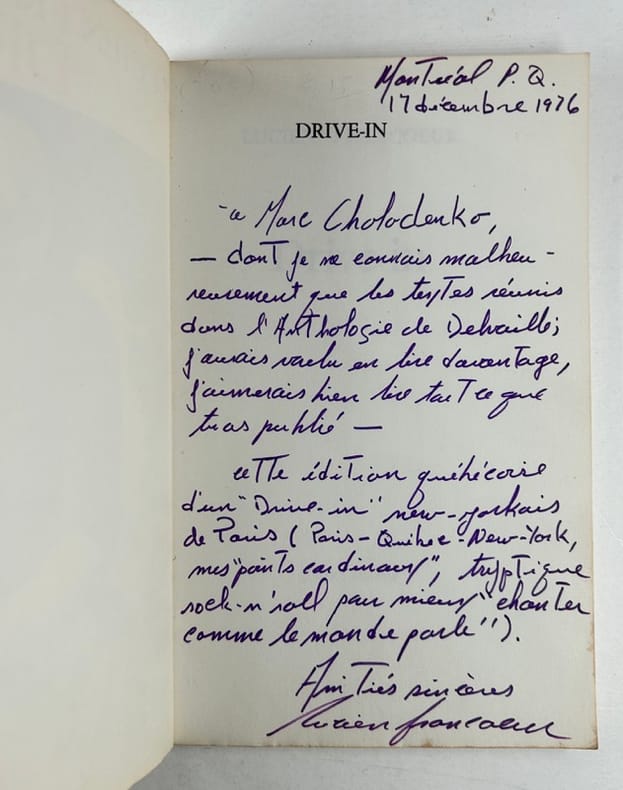 Montréal P. Q.
17 décembre 1976
DRIVE-IN
à Marc Cholodenko,
— dont je ne connais malheu-
reusement que les textes réunis
dans l'Anthologie de Delvaille;
j'aurais voulu en lire davantage,
j'aimerais bien lire tout ce que
tu as publié —
cette édition québécoise
d'un "Drive-in" new-yorkais
de Paris (Paris-Québec-New-York,
mes "points cardinaux", tryptique
rock-n'roll pour mieux "chanter
comme le monde parle").
Amitiés sincères
Lucien Francoeur